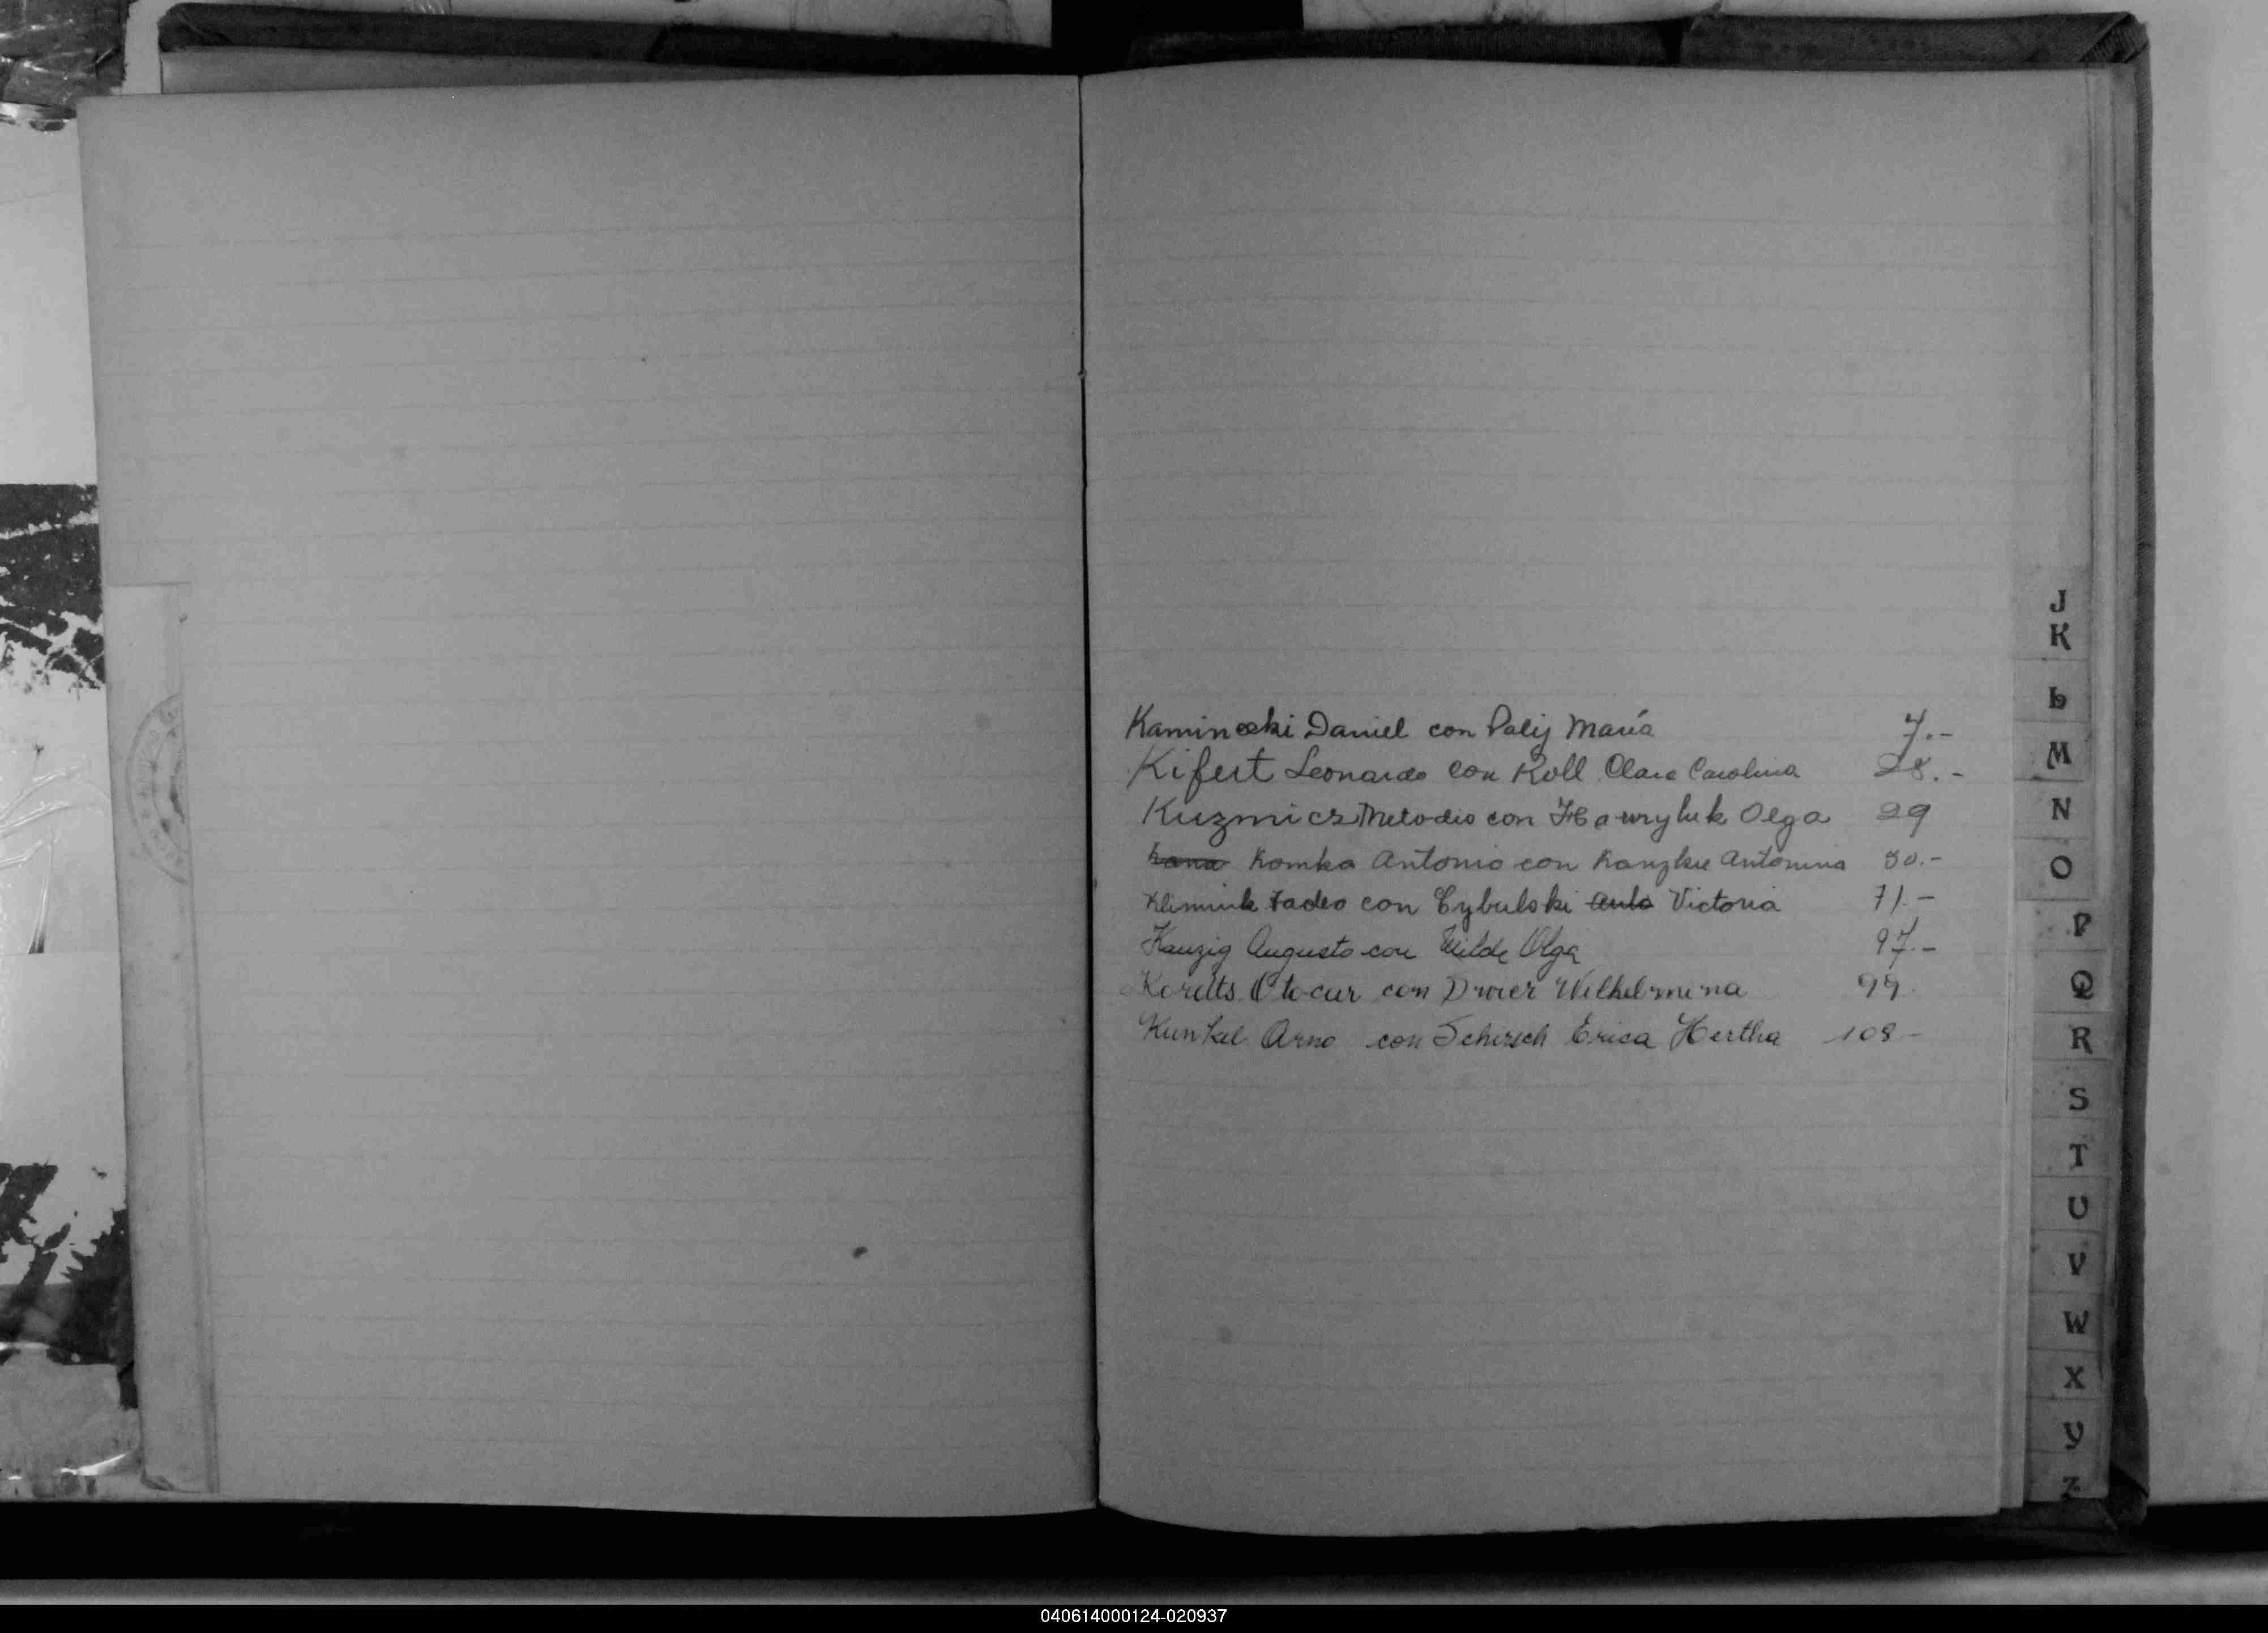 J
K
L
Kaminski Daniel con Palij María 7.-
M
Kifert Leonardo con Koll Clara Carolina 28.-
N
Kuzmicz Metodio con Hawryluk Olga 29
O
Komka Antonio con Antonina 30.-
Klimiuk Tadeo con Cybulski Victoria 71.-
P
Kanzig Augusto con Wilde Olga 97.-
Q
Koralts Otocar con Drwer Wilhelmina 99.
R
Kunkel Arno con Schirsch Erica Hertha 108-
S
T
U
V
W
X
Y
Z
040614000124-020937